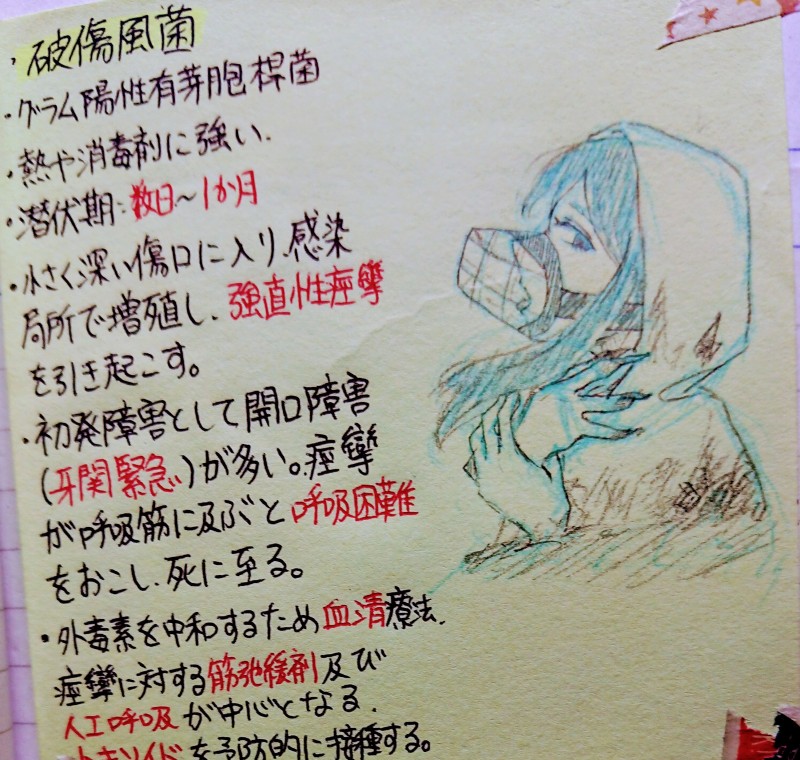 ・破傷風菌
・グラム陽性有芽胞桿菌
・熱や消毒剤に強い.
・潜伏期:数日～1か月
・小さく深い傷口に入り、感染
局所で増殖し、強直性痙攣
を引き起こす。
・初発障害として開口障害
(牙関緊急)が多い。痙攣
が呼吸筋に及ぶと呼吸困難
をおこし、死に至る。
・外毒素を中和するため血清療法.
痙攣に対する筋弛緩剤及び
人工呼吸が中心となる.
トキソイドを予防的に接種する。